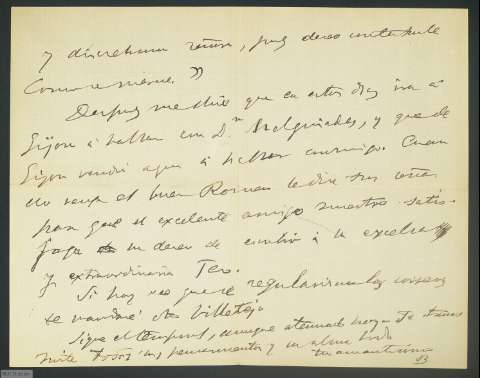 y discretamen señas, pues deseo contestarle
como merece."
Después me dice que en estos días irá á
Gijon á hablar con D.n Melquiades, y que de
Gijon vendrá aquí á hablar conmigo. Cuan
do venga el buen Roman le diré tus señas
para que el excelente amigo nuestro satis-
faga su deseo de escribir á la excelsa
y extraordinaria Teo.
Si hoy veo que se regularizan las cosas
se mandará otro billetejo
Sigue el temporal, aunque atenuado
pensamientos y un alma
amantísimo
B